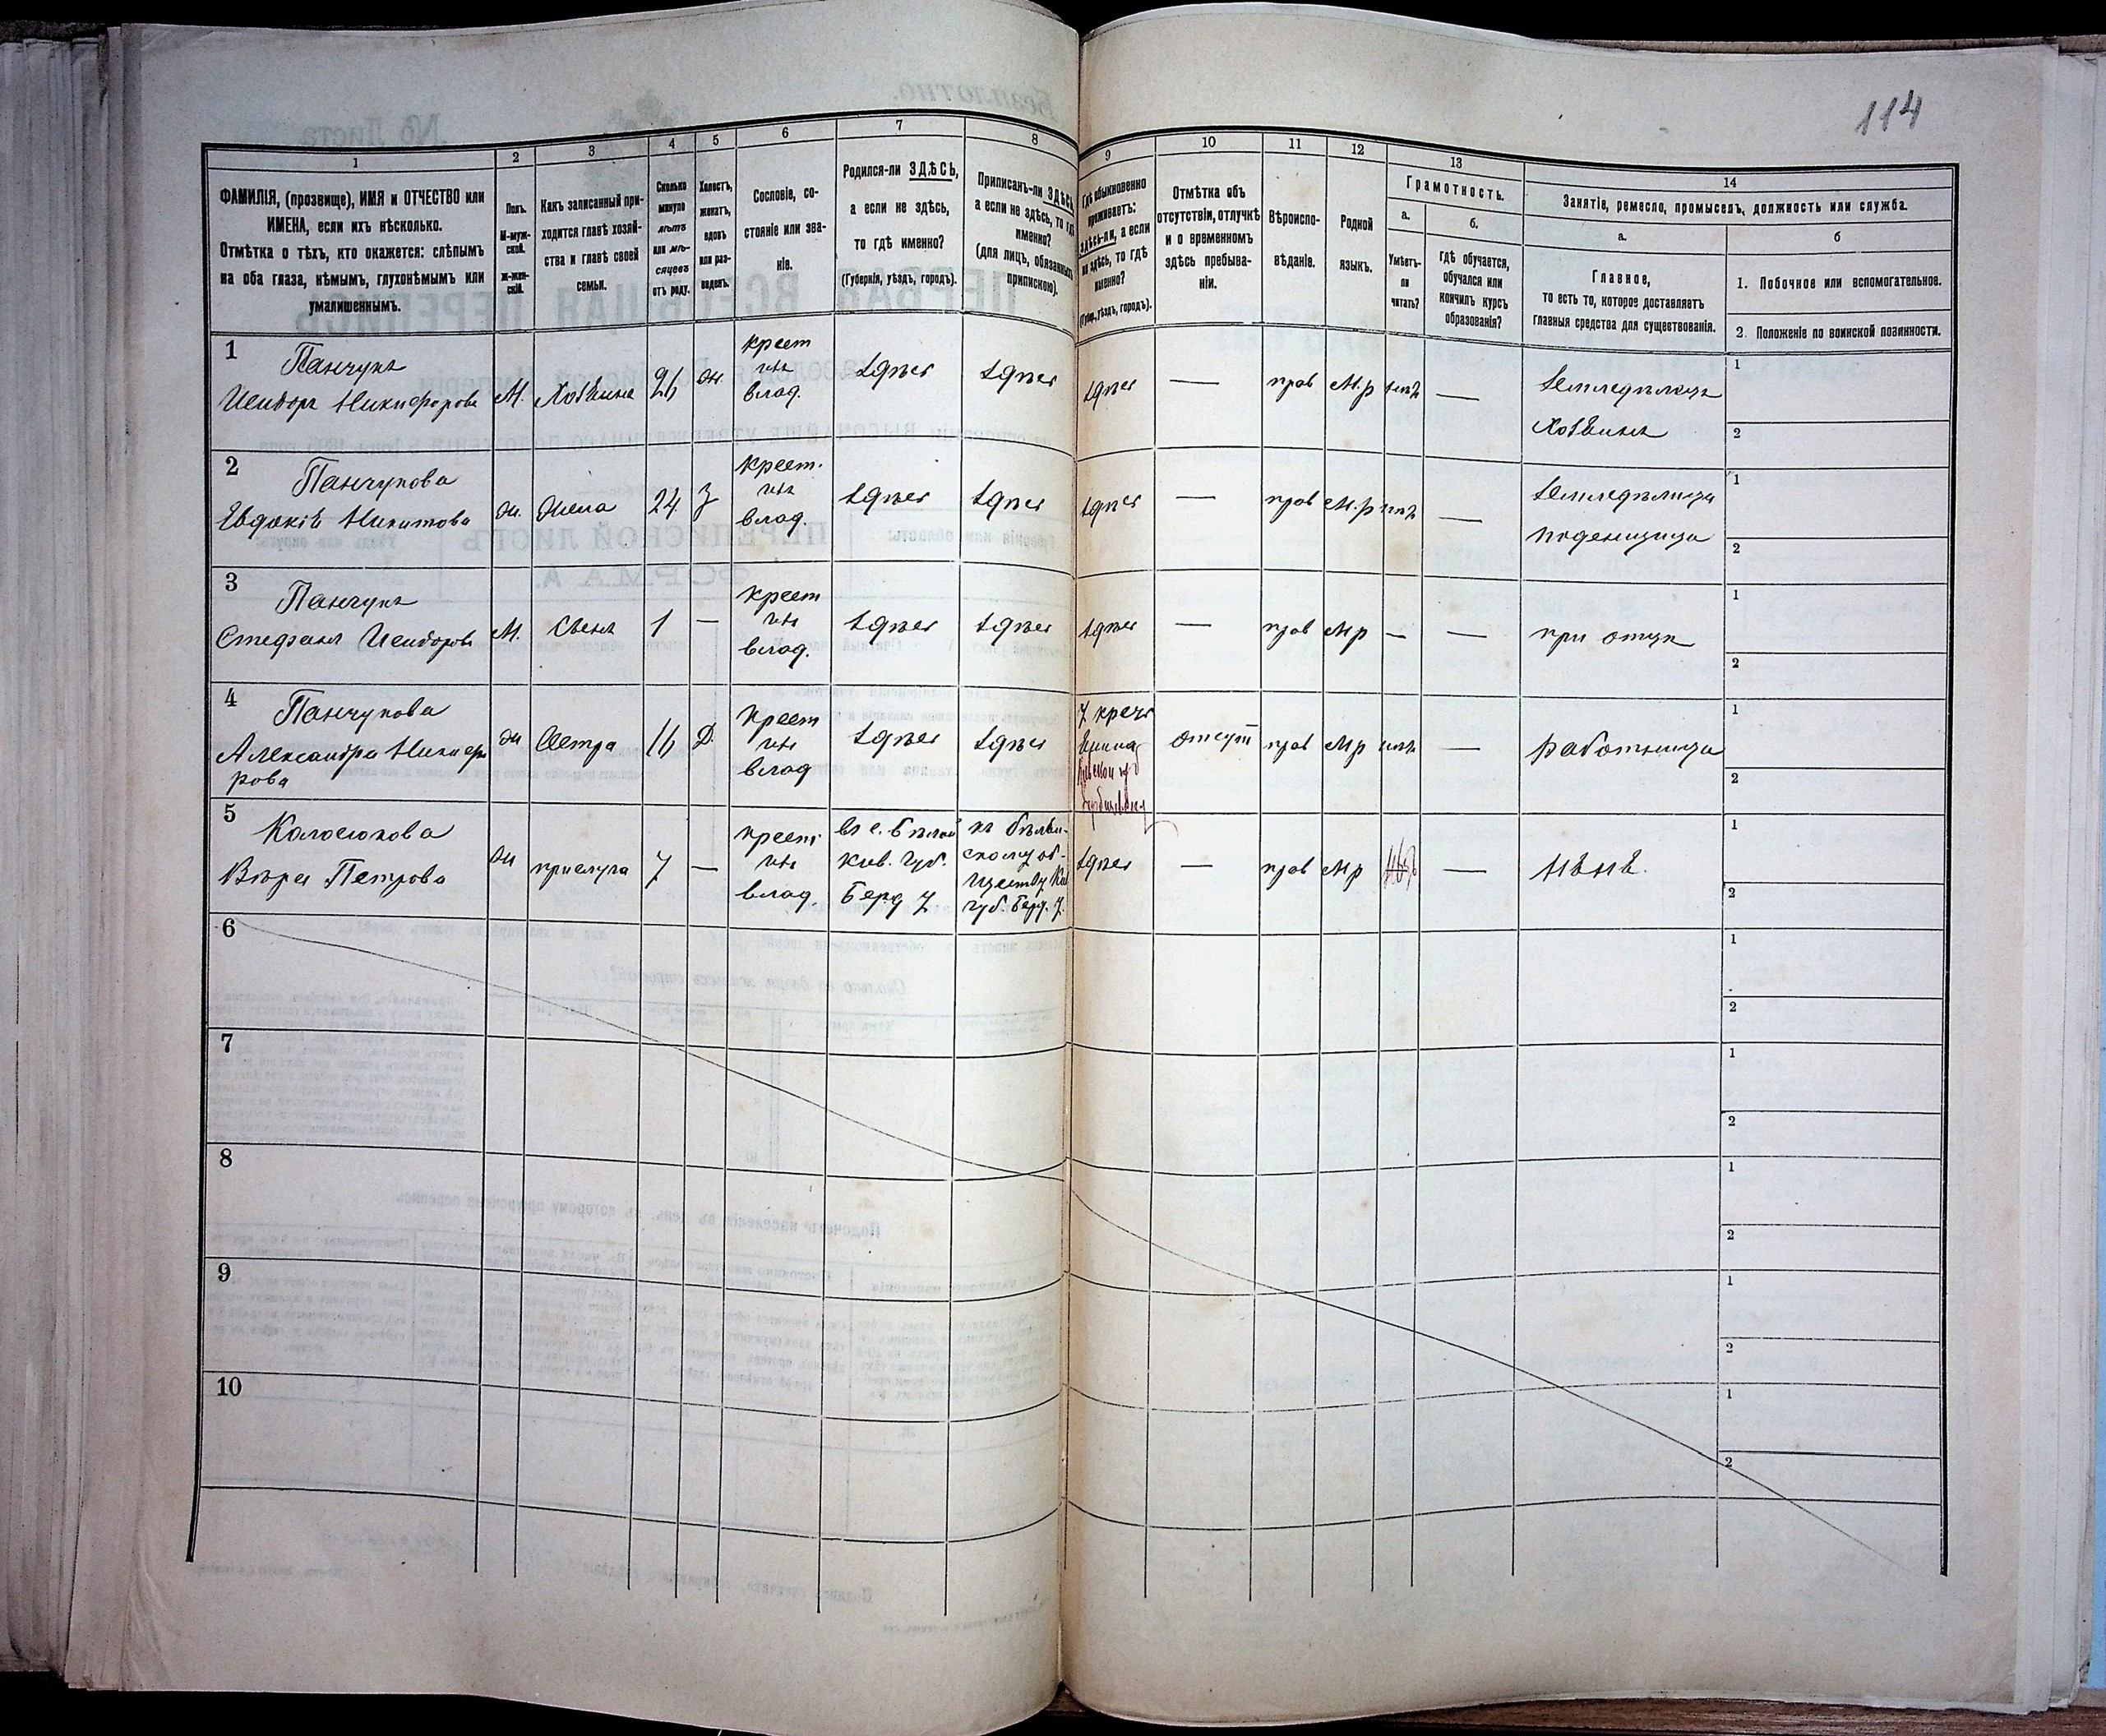 114
1
ФАМИЛІЯ, (прозвище), ИМЯ и ОТЧЕСТВО или
ИМЕНА, если ихъ нѣсколько.
Отмѣтка о тѣхъ, кто окажется: слѣпымъ
на оба глаза, нѣмымъ, глухонѣмымъ или
умалишеннымъ.
2
Полъ.
М-муж-
ской.
Ж-жен-
скій.
3
Какъ записанный при-
ходится главѣ хозяй-
ства и главѣ своей
семьи.
4
Сколько
минуло
лѣтъ
или мѣ-
сяцевъ
отъ роду.
5
Холостъ,
женатъ,
вдовъ
или раз-
веденъ.
6
Сословіе, со-
стояніе или зва-
ніе.
7
Родился-ли ЗДѢСЬ,
а если не здѣсь,
то гдѣ именно?
(Губернія, уѣздъ, городъ).
8
Приписанъ-ли ЗДѢСЬ,
а если не здѣсь, то гдѣ
именно?
(для лицъ, обязанныхъ
припискою).
9
Гдѣ обыкновенно
проживаетъ:
здѣсь-ли, а если
не здѣсь, то гдѣ
именно?
(Губер., уѣздъ, городъ).
10
Отмѣтка объ
отсутствіи, отлучкѣ
и о временномъ
здѣсь пребыва-
ніи.
11
Вѣроиспо-
вѣданіе.
12
Родной
языкъ.
13
Грамотность.
а.
Умѣетъ-
ли
читать?
б.
гдѣ обучается,
обучался или
кончилъ курсъ
образованія?
14
Занятіе, ремесло, промыселъ, должность или служба.
а.
Главное,
то есть то, которое доставляетъ
главныя средства для существованія.
б
1. Побочное или вспомогательное.
2. Положеніе по воинской повинности.
1
Панчукъ
Исидоръ Никифоровъ
М.
Хозяинъ
26
ж.
крест
изъ
влад.
здѣсь
здѣсь
здѣсь
—
прав
М.р
нѣтъ
—
земледѣлецъ
Хозяинъ
1
2
2
Панчукова
Евдокія Никитова
ж.
Жена
24
З
крест.
изъ
влад.
здѣсь
здѣсь
здѣсь
—
прав
М.р
нѣтъ
—
земледѣлица
поденщица
1
2
3
Панчукъ
Стефанъ Исидоровъ
М.
Сынъ
1
—
крест
изъ
влад.
здѣсь
здѣсь
здѣсь
—
прав
Мр
—
—
при отцѣ
1
2
4
Панчукова
Александра Никифо
рова
ж
Сестра
16
Д.
Крест
изъ
влад
здѣсь
здѣсь
отсут
прав
Мр
нѣтъ
—
работница
1
2
5
Колосюкова
Вѣра Петрова
ж
прислуга
7
—
крест
изъ
влад.
въ с. Бѣлой
Кіев. Губ.
Берд У
къ Бѣлян-
скому об-
ществу Кіев
губ. Берд. У.
здѣсь
—
прав
Мр
—
няня.
1
2
6
1
2
7
1
2
8
1
2
9
1
2
10
1
2